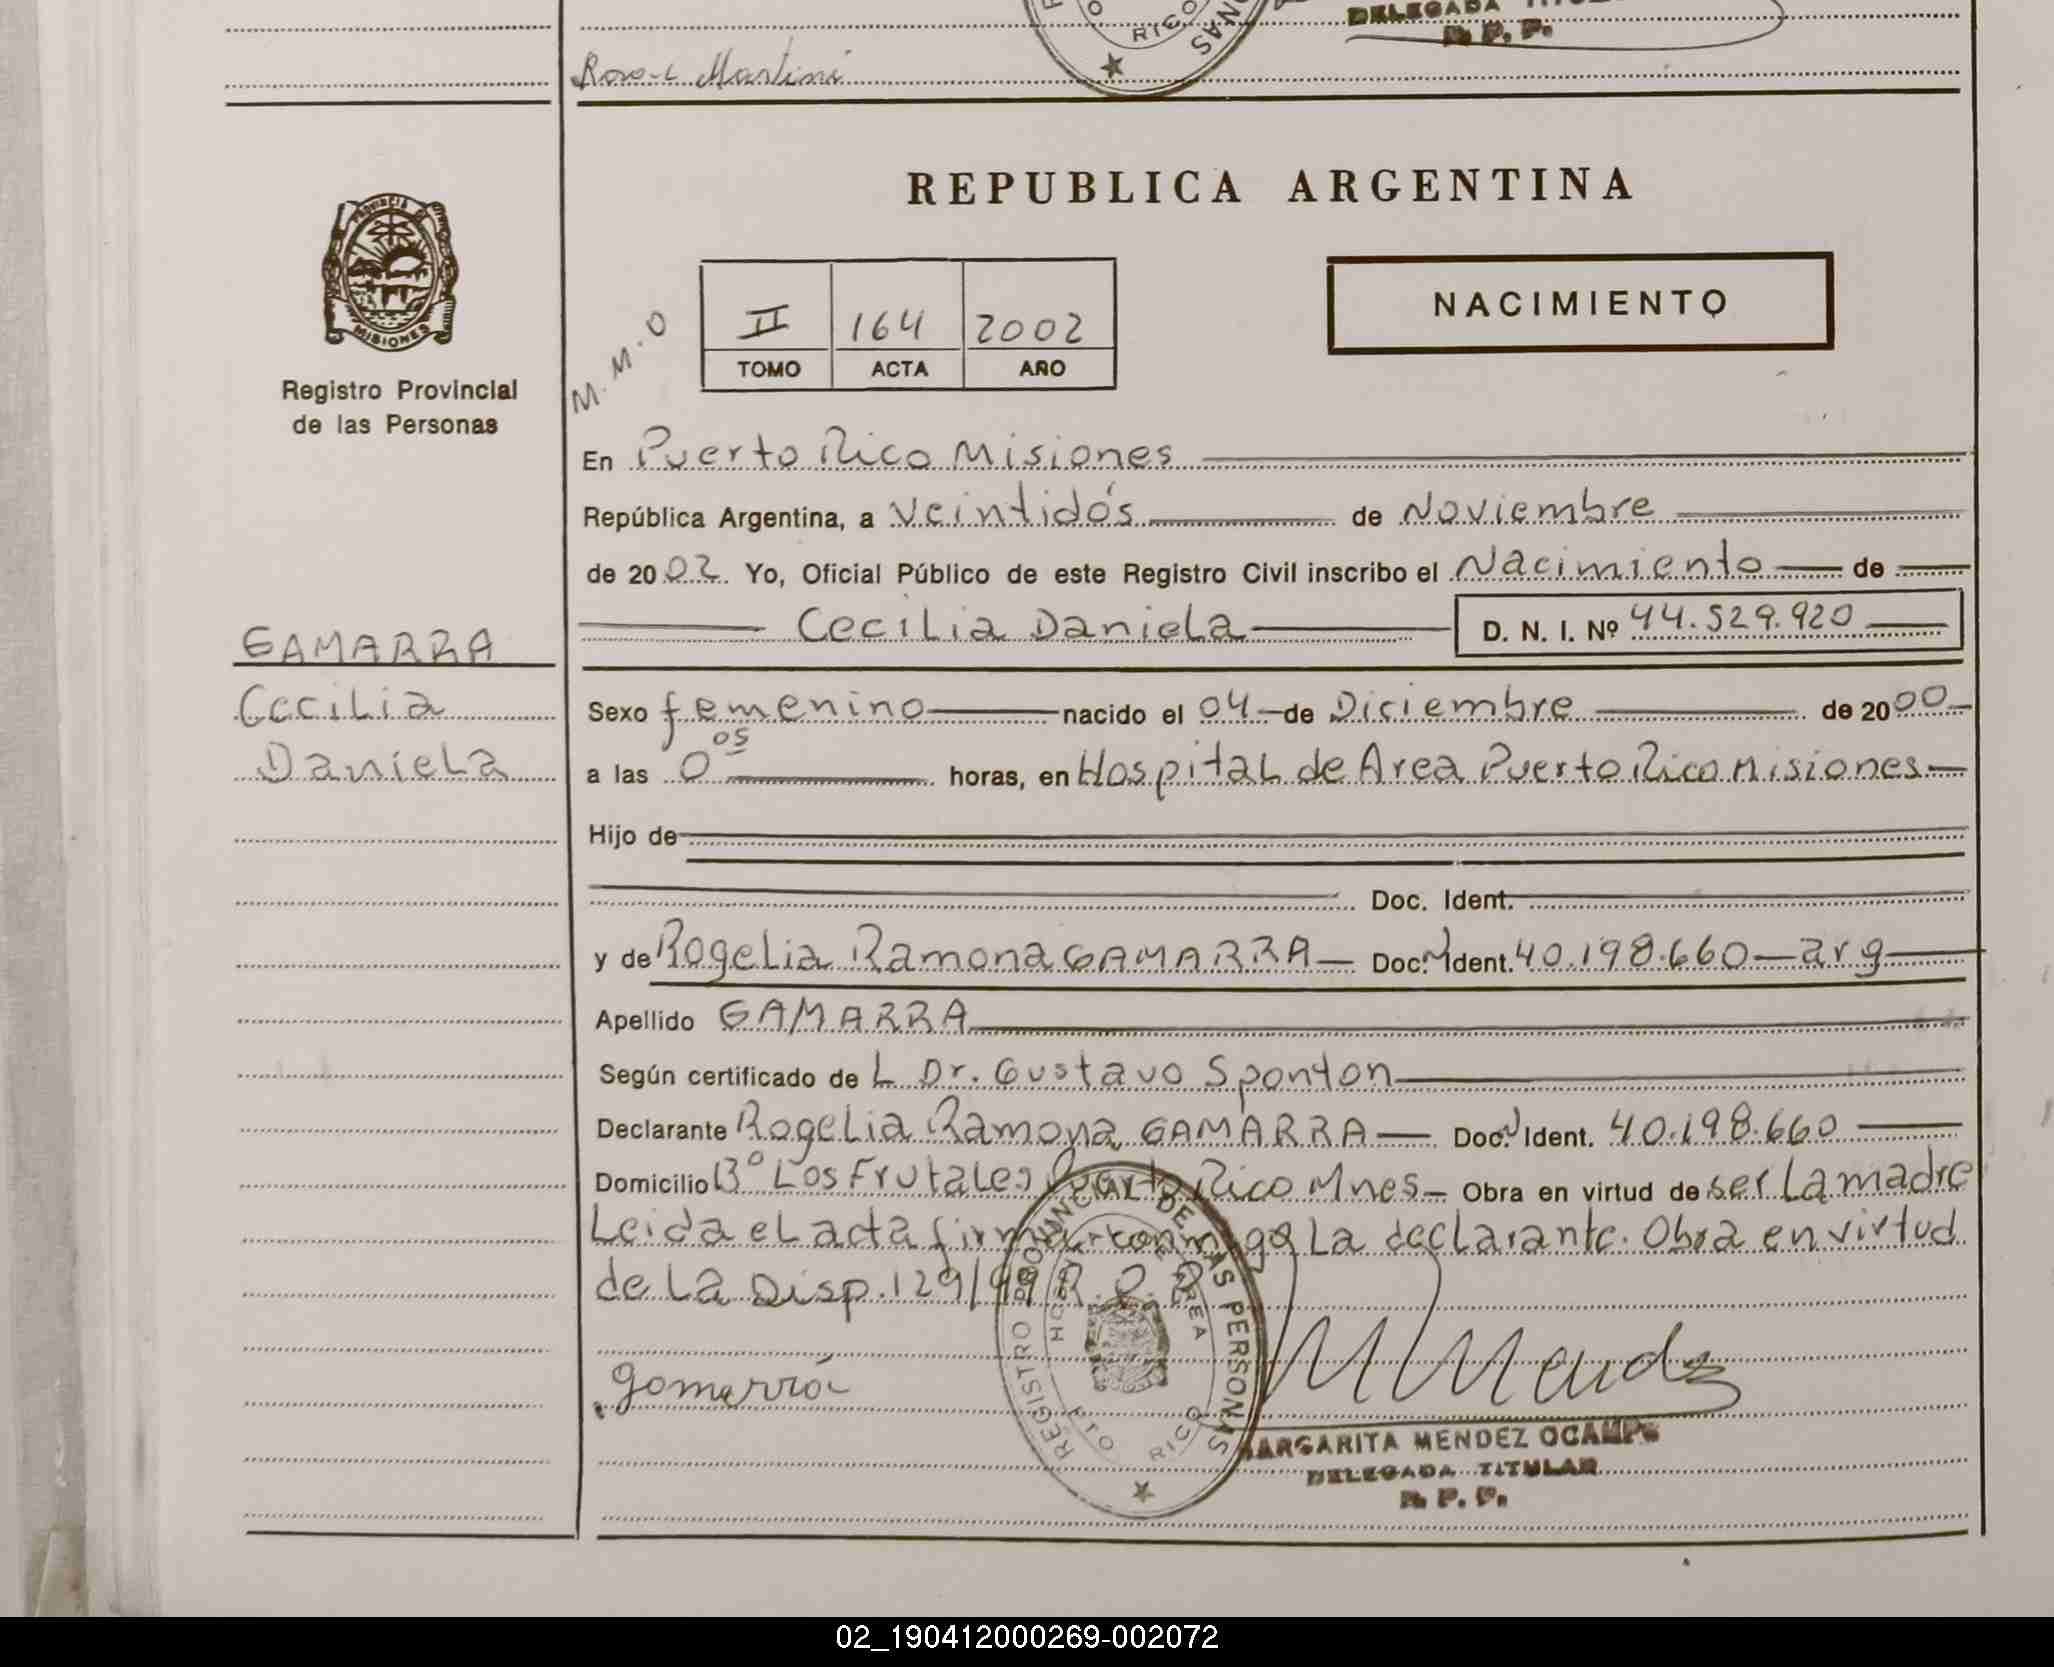 DELEGADA
R. P. P.
RICO
Martini
REPUBLICA ARGENTINA
PROVINCIA DE
MISIONES
Registro Provincial
de las Personas
M.M.O
II 164 2002
TOMO ACTA AÑO
NACIMIENTO
En Puerto Rico Misiones
República Argentina, a veintidós de Noviembre
de 2002 Yo, Oficial Público de este Registro Civil inscribo el Nacimiento de
Cecilia Daniela D. N. I. Nº 44.529.920
GAMARRA
Cecilia
Daniela
Sexo femenino nacido el 04 de Diciembre de 2000
a las 0 05 horas, en Hospital de Area Puerto Rico Misiones
Hijo de
Doc. Ident.
y de Rogelia Ramona GAMARRA Doc. N Ident. 40.198.660 arg
Apellido GAMARRA
Según certificado de L Dr. Gustavo Sponton
Declarante Rogelia Ramona GAMARRA Doc. N Ident. 40.198.660
Domicilio Bº Los Frutales Puerto Rico Mnes Obra en virtud de ser La madre
Leida el acta firma conmigo La declarante. Obra en virtud
de La Disp. 129/99 R.P.P.
REGISTRO PROVINCIAL DE LAS PERSONAS
HOSPITAL DE AREA
PTO RICO
gamarra
M Mendz
MARGARITA MENDEZ OCAMPO
DELEGADA TITULAR
R. P. P.
02_190412000269-002072